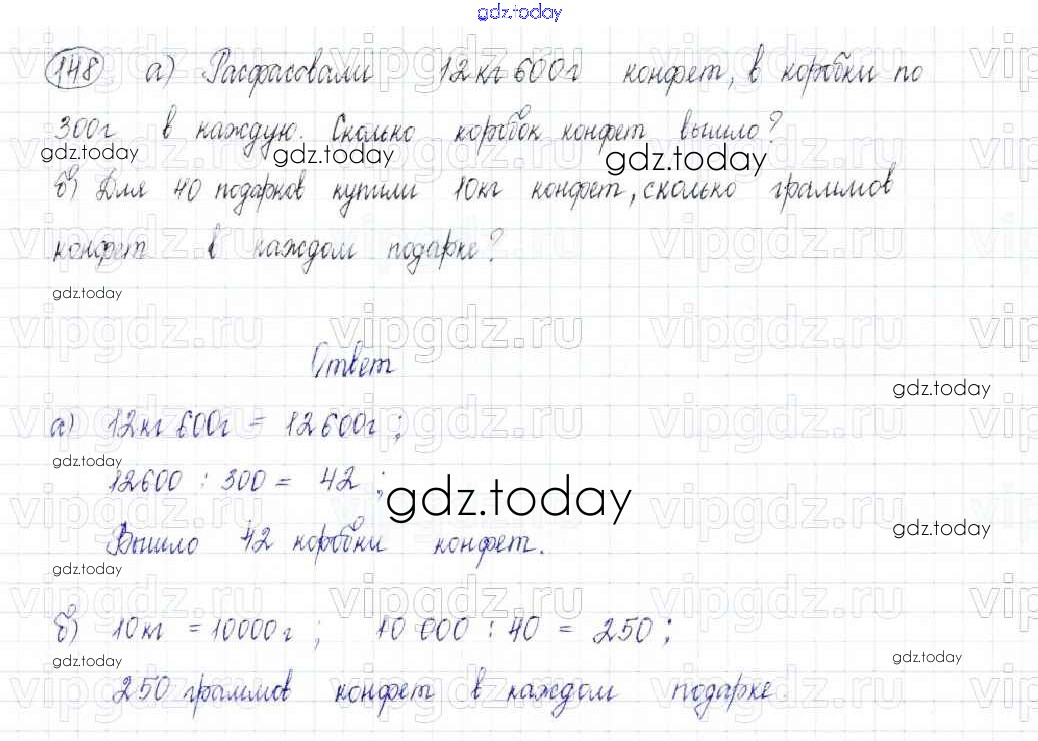 gdz.today
148 а) Расфасовали 12кг 600г конфет, в коробки по
300г в каждую. Сколько коробок конфет вышло?
gdz.today gdz.today gdz.today
б) Для 40 подарков купили 10кг конфет, сколько граммов
vipgdz.ru vipgdz.ru vipgdz.ru
конфет в каждом подарке?
gdz.today
vipgdz.ru vipgdz.ru vipgdz.ru
Ответ
gdz.today
а) 12кг 600г = 12600г;
gdz.today
12600 : 300 = 42;
gdz.today
gdz.today
Вышло 42 коробки конфет.
gdz.today
vipgdz.ru vipgdz.ru vipgdz.ru
б) 10кг = 10000г; 10 000 : 40 = 250;
gdz.today gdz.today
250 граммов конфет в каждом подарке.